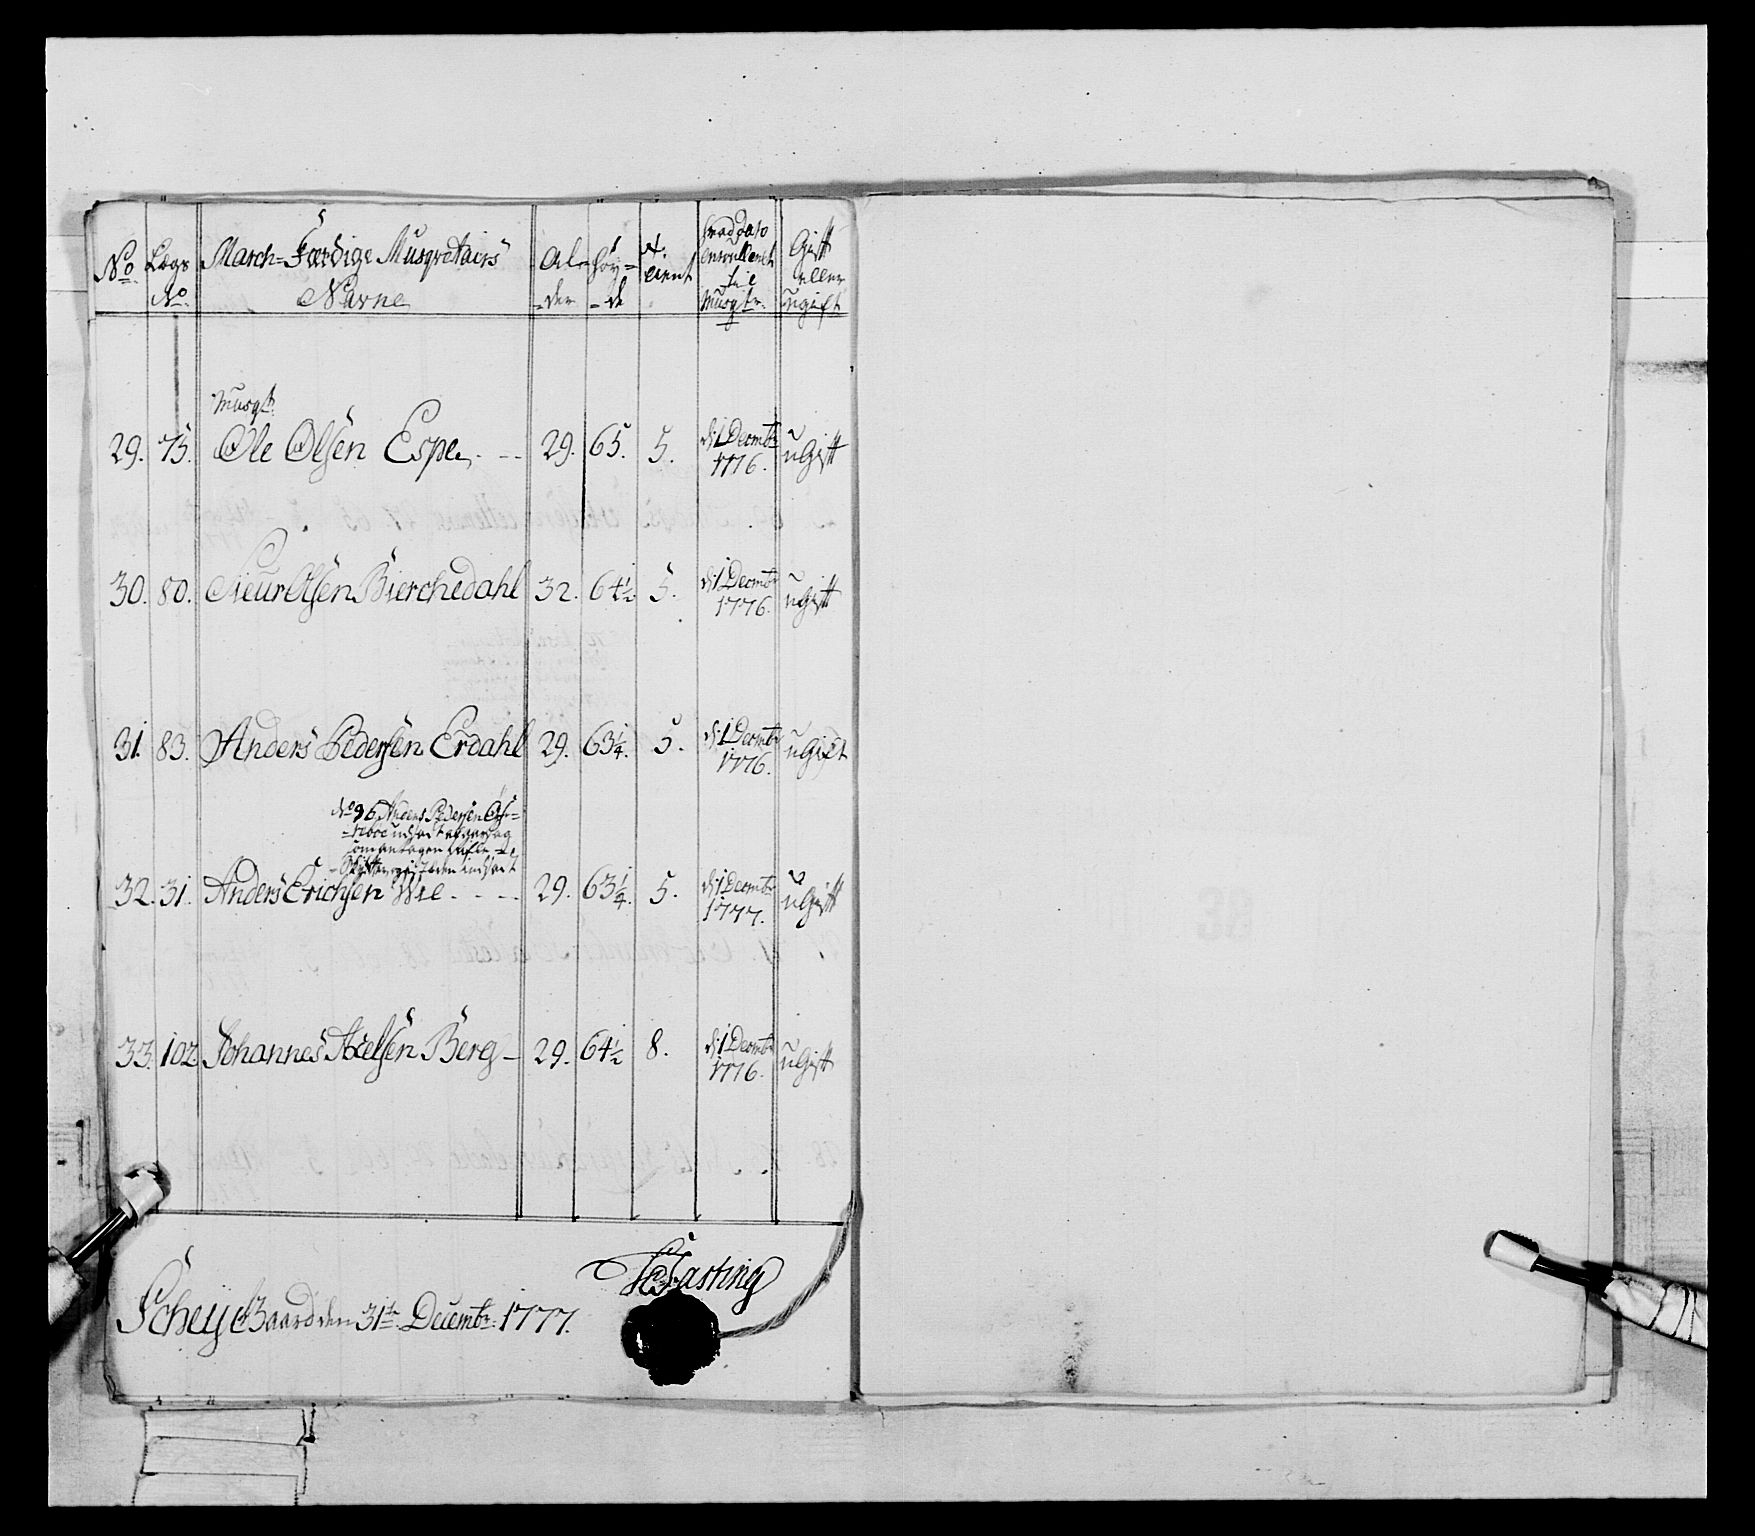 No Legs No March-Færdige Musqvetairs Navne Al-der Høy-de Tient hvad dato enroulleret til Musqtr. Gift eller ugift
Musqt.
29. 75. Ole Olsen Espe. 29. 65. 5. d: 1 Decembr 1776. ugift
30. 80. Sieur Olsen Bierchedahl 32. 64½ 5. d: 1 Decembr 1776. ugift
31. 83. Anders Pedersen Erdahl 29. 63¼. 5. d: 1 Decembr 1776. ugift
No 96 Anders Pedersen
udsadt
indsadt
32. 31. Anders Erichsen Wie 29. 63¼. 5. d: 1 Decembr 1777. ugift
33. 102 Johannes Axelsen Berg 29. 64½ 8. d: 1 Decembr 1776. ugift
Fasting
Schey Gaard den 31te Decembr: 1777.